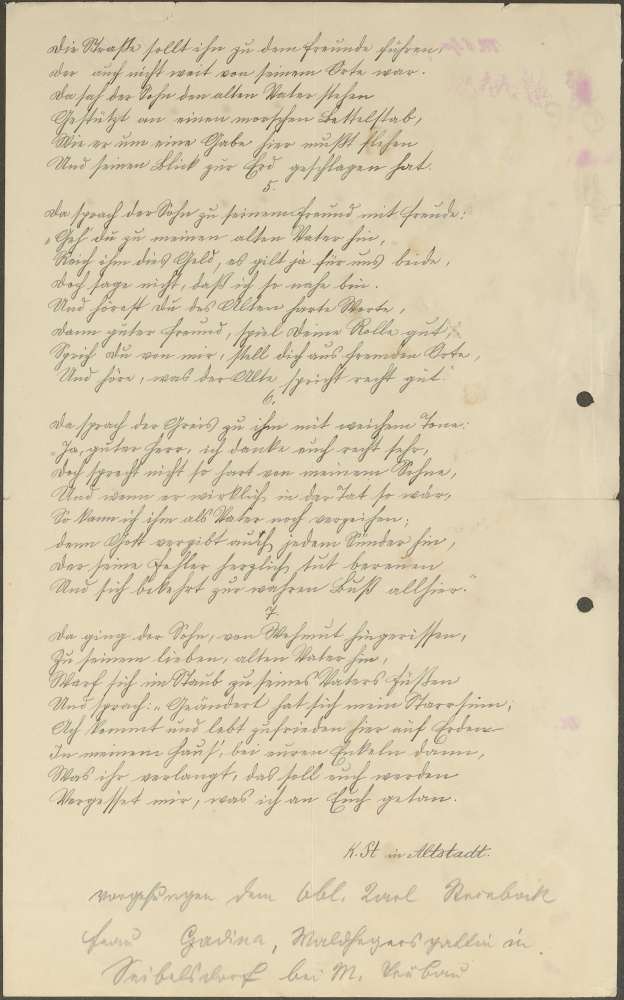 Die Straße sollt ihn zu dem Freunde führen,
der auch nicht weit von seinem Orte war.
Da sah der Sohn den alten Vater stehen
Gestützt an einen morschen Bettelstab,
Wie er um eine Gabe hier mußt flehen
Und seinen Blick zur Erd geschlagen hat.
5.
Da sprach der Sohn zu seinem Freund mit Freude:
"Geh' du zu meinen alten Vater hin,
Reich ihm dies Geld, es gilt ja für uns beide,
Doch sage nicht, daß ich so nahe bin.
Und hörest du des Alten harte Worte,
Dann guter Freund, spiel deine Rolle gut,
Sprich du von mir, stell dich aus fremden Orte,
Und höre, was der Alte spricht recht gut."
6.
Da sprach der Greis zu ihm mit weichem Tone:
"Ja, guter Herr, ich danke euch recht sehr,
Doch sprecht nicht so hart von meinem Sohne,
Und wenn er wirklich in der Tat so wär,
So kann ich ihm als Vater noch verzeihen;
denn Gott vergibt auch jedem Sünder hin,
Der seine Fehler herzlich tut bereuen
Und sich bekehrt zur wahren Buß allhier."
7.
Da ging der Sohn, von Wehmut hingerissen,
Zu seinem lieben, alten Vater hin,
Warf sich im Staub zu seines Vaters Füßen
Und sprach: "Geändert hat sich mein Starrsinn;
Ach kommt und lebt zufrieden hier auf Erden
In meinem Haus', bei euren Enkeln dann,
Was ihr verlangt, das soll euch werden
Vergesset mir, was ich an Euch getan.
K. St in Altstadt.
vorgesungen dem Obl. Karl
Frau Gadina, Waldhegersgattin in
Seibelsdorf bei M. Trübau